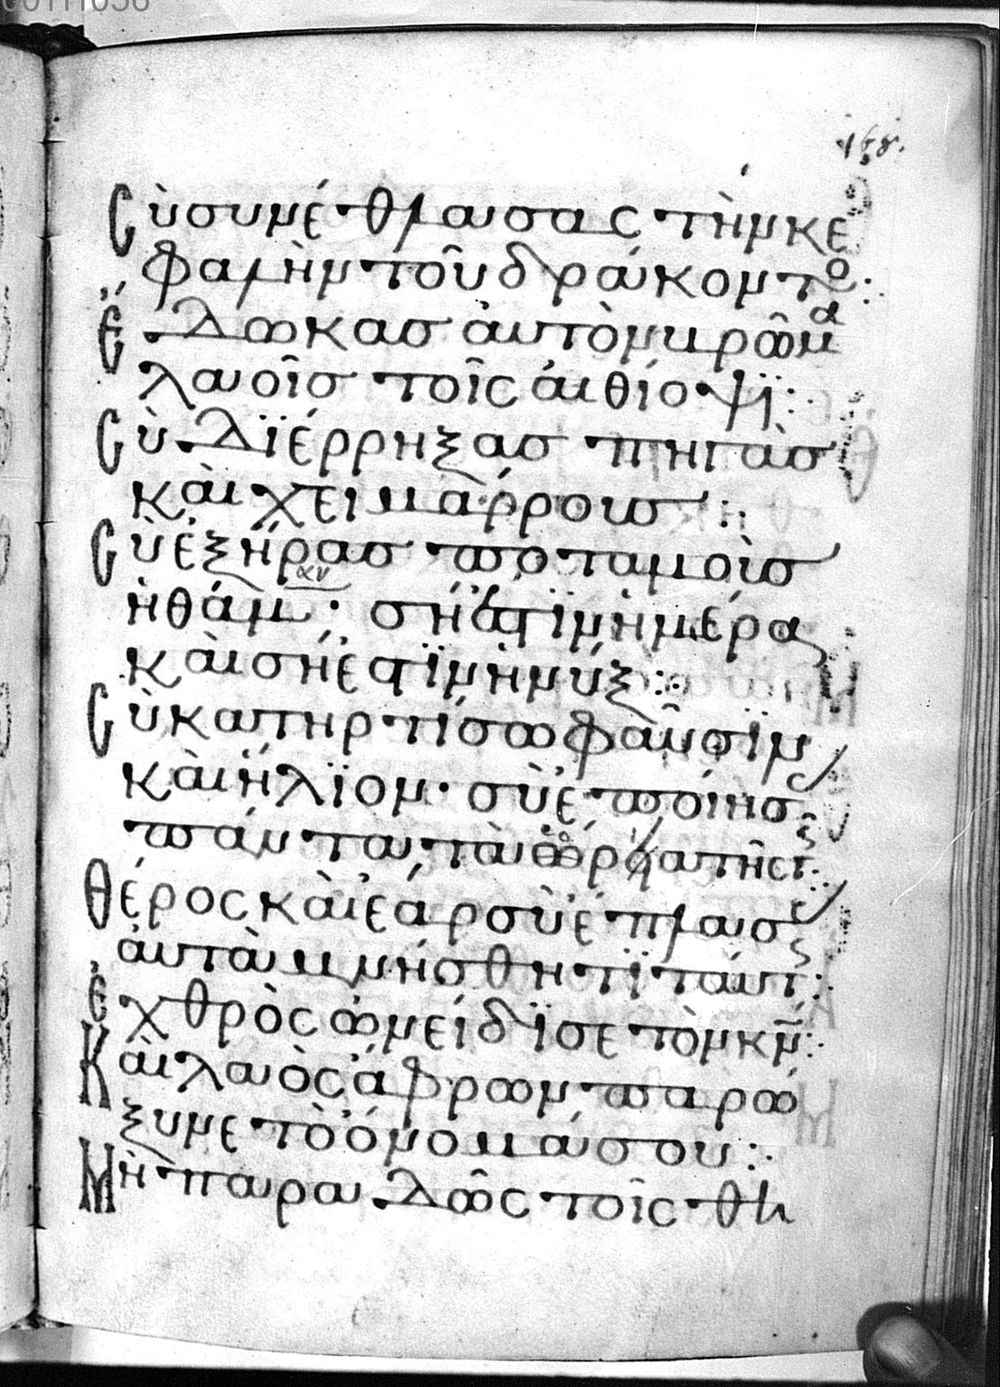 00111056
168.
Σὺ συνέθλασας τὴν κε
φαλὴν τοῦ δράκοντο:
Ἔδωκας ἀυτὸν βρῶμα
λαοῖσ τοῖς ἀιθίοψϊ:
Σὺ δϊέρρηξας πηγὰσ
κὰι χειμάρρουσ:
Σὺ ἐξήρασ ποταμοὺσ
ἠθάμ αν· σή ἐστϊν ἡμέρα
κὰι σή ἐστϊν ἡ νύξ:
Σὺ κατηρτίσω φαῦσϊν
κὰι ἥλϊον· σὺ ἐποίησ
πάντα τὰ ὅρϊα τῆσ γ:
θέρος κὰι ἔαρ σὺ ἔπλασ
ἀυτὰ μνήσθητϊ ταύτ:
ἐχθρὸς ὠνείδϊσε τὸν κν:
Κὰι λαὸς ἄφρων παρώ
ξυνε τὸ ὄνομά σου:
Μὴ παραδῶς τοῖς θη